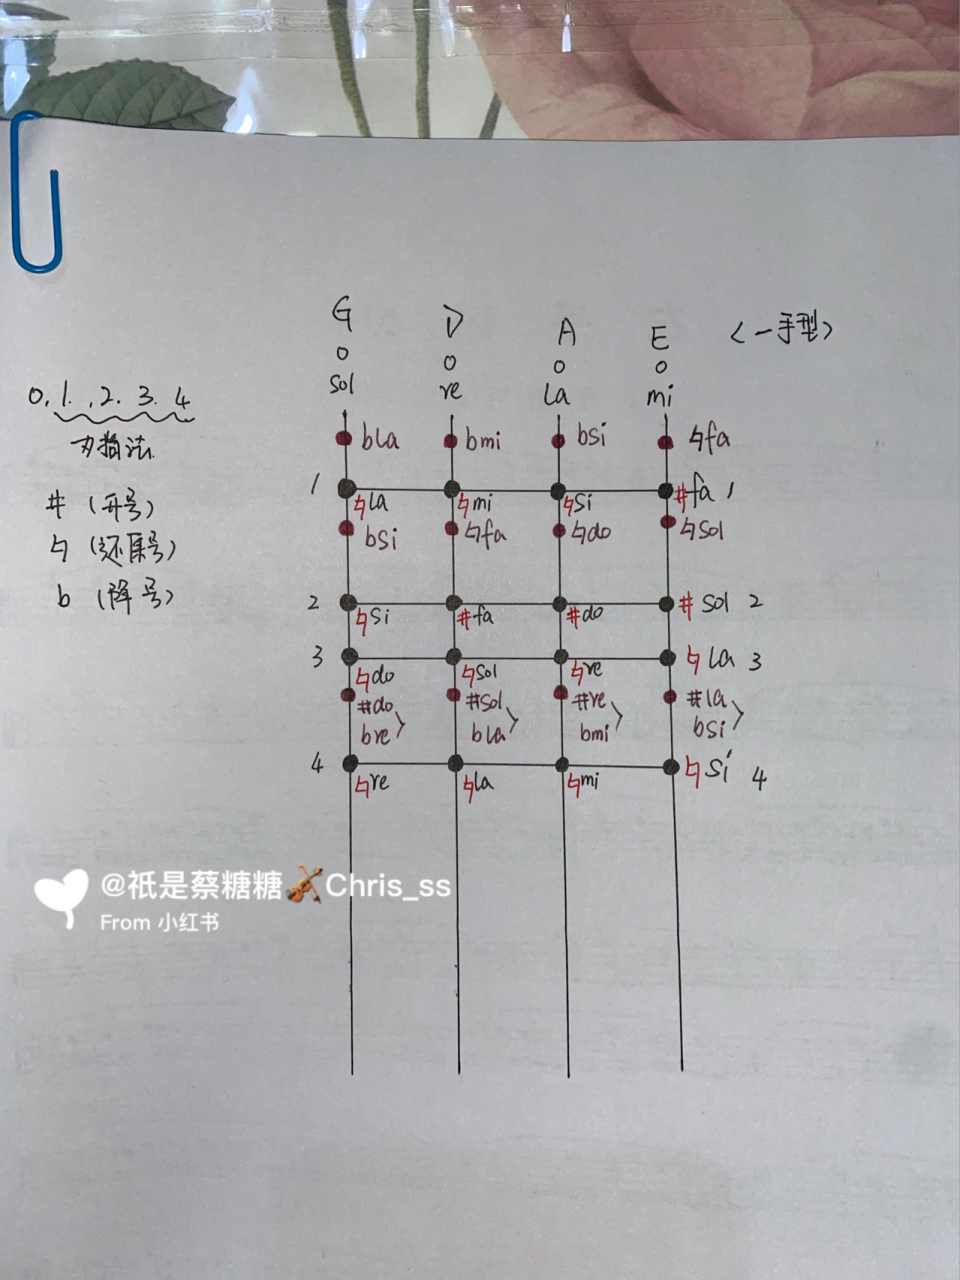 G D A E 〈一手型〉
0 0 0 0
sol re La mi
0, 1. , 2. 3. 4
为指法
#（升号）
♮（还原号）
b（降号）
bla bmi bsi ♮fa
1 ♮La ♮mi ♮si #fa 1
bsi ♮fa ♮do ♮sol
2 ♮si #fa #do # sol 2
3 ♮do ♮sol ♮re ♮La 3
#do #sol #re #la
bre〉 bla〉 bmi〉 bsi〉
4 ♮re ♮La ♮mi ♮si 4
@祇是蔡糖糖🎻Chris_ss
From 小红书